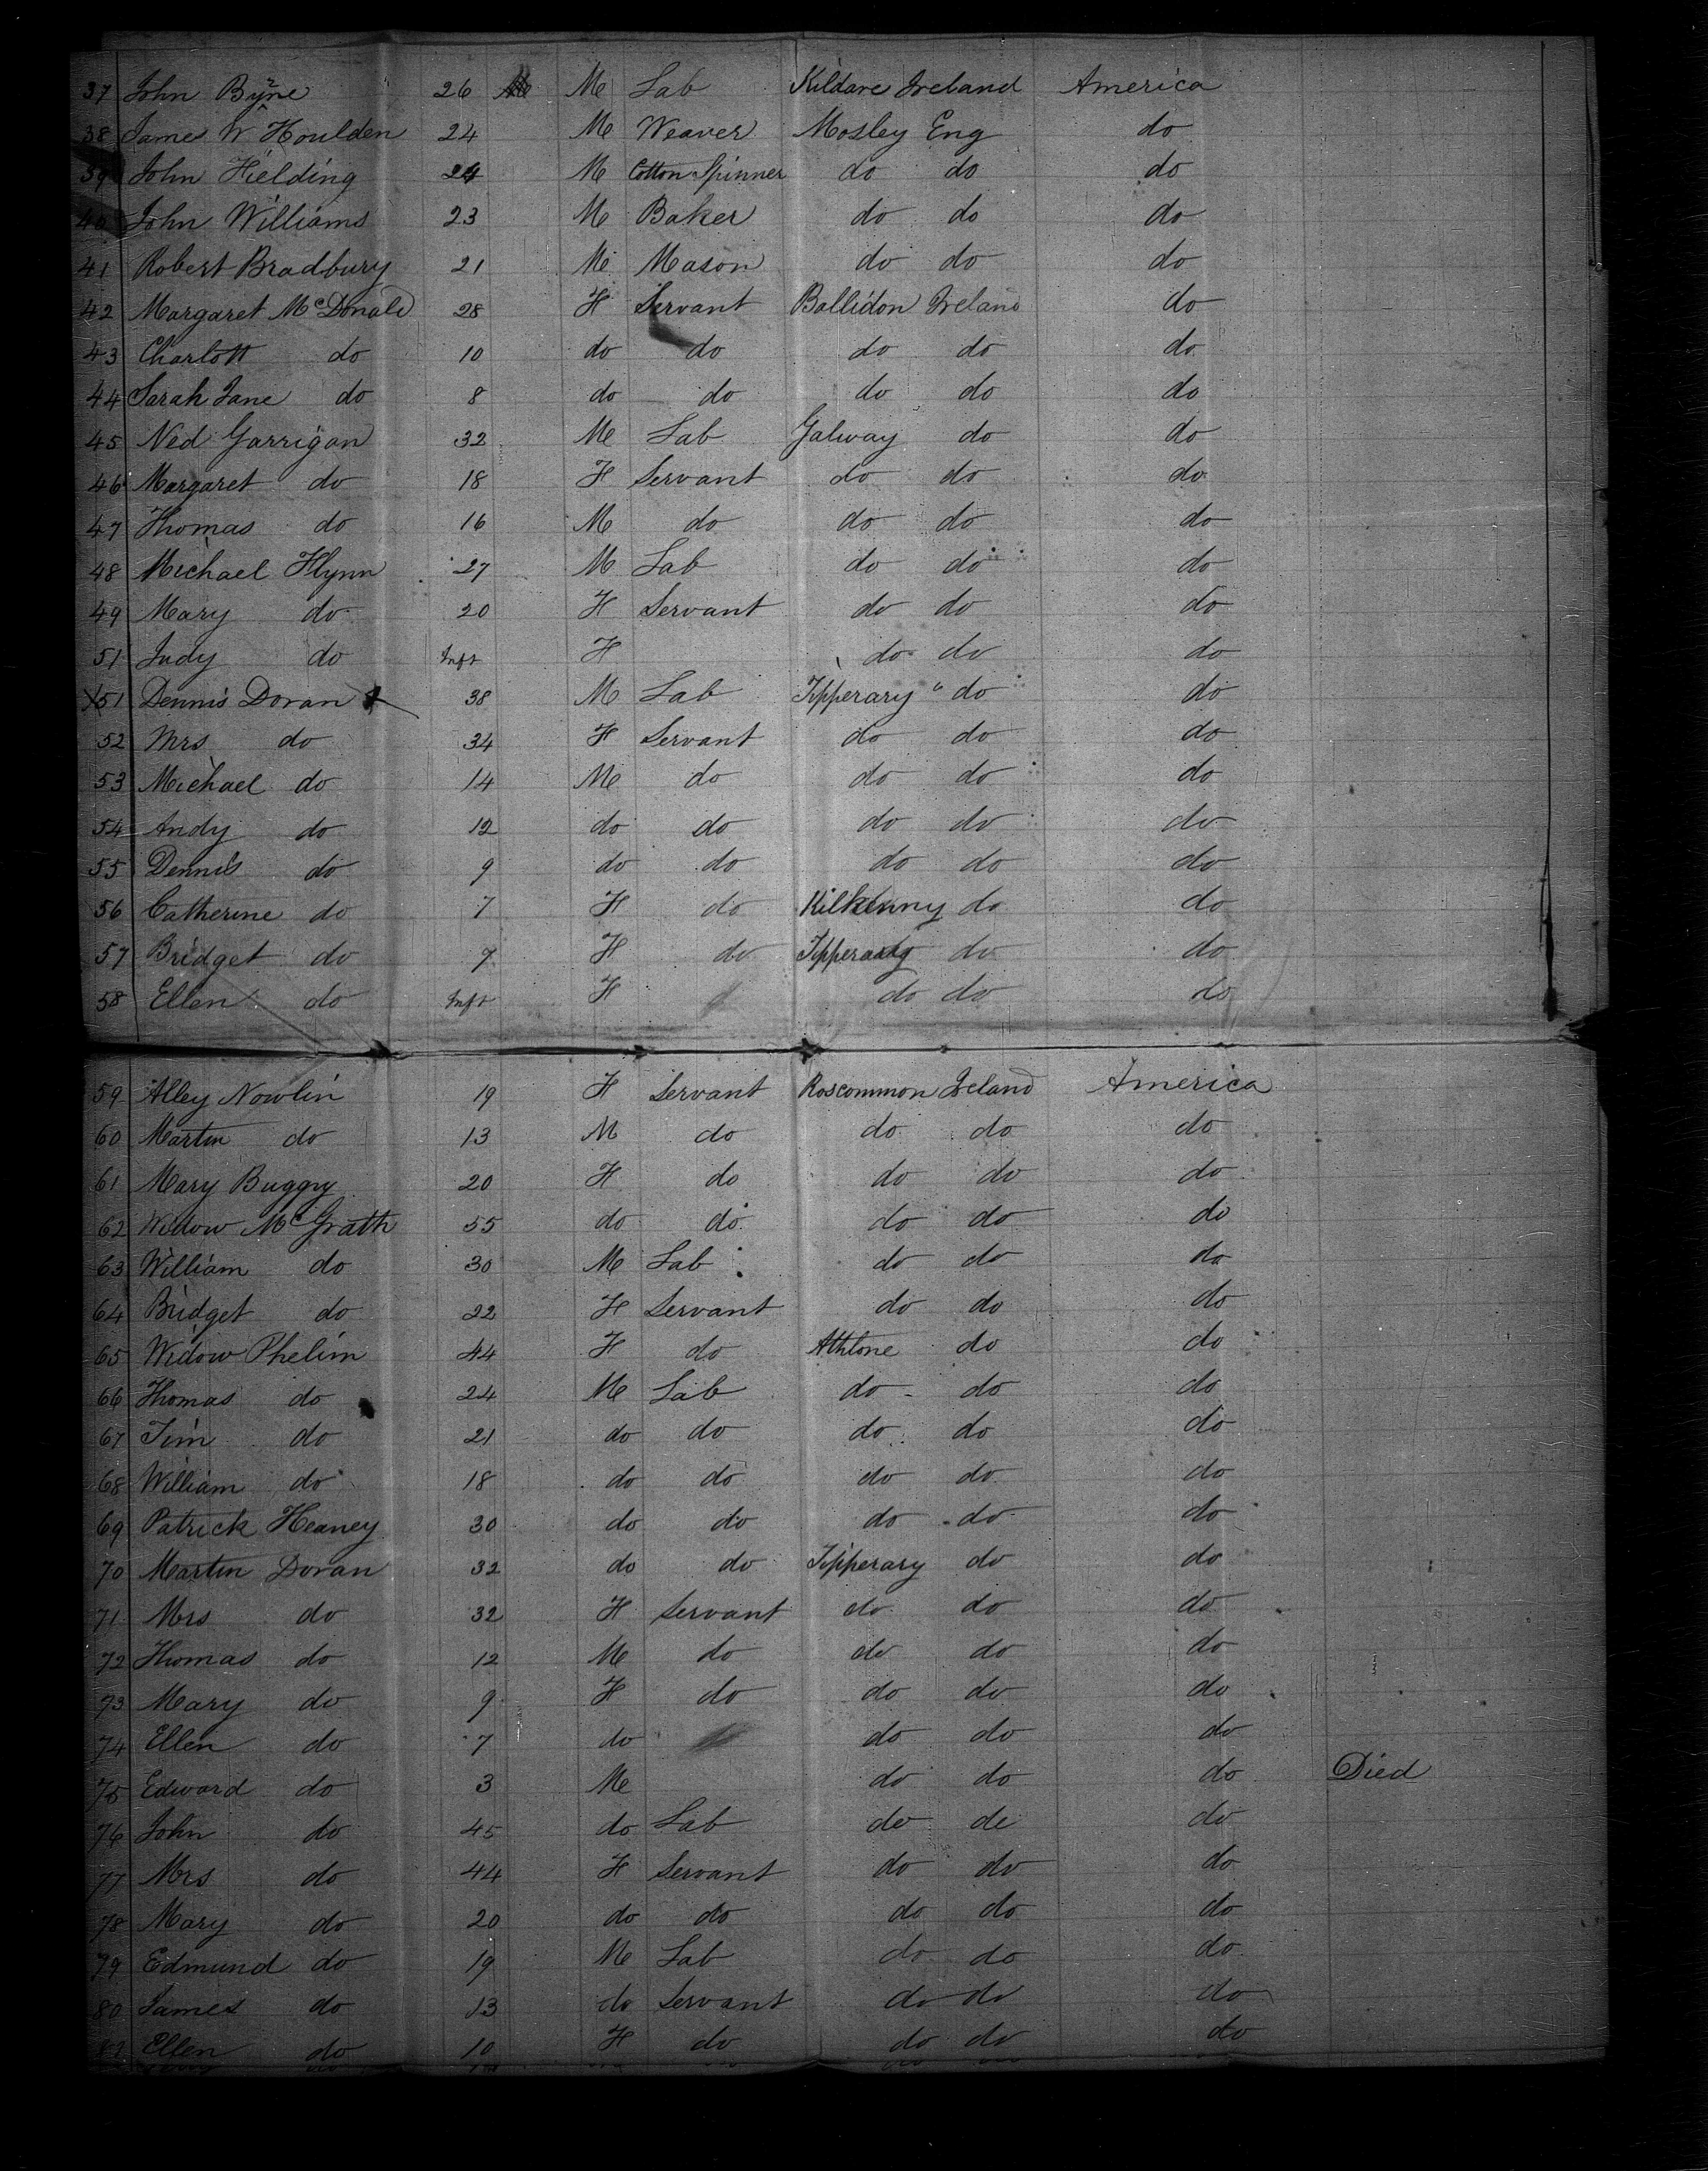 37 John Byrne 26 M Lab Kildare Ireland America
38 James W Houlden 24 M Weaver Mosley Eng do
39 John Fielding 24 M Cotton Spinner do do do
40 John Williams 23 M Baker do do do
41 Robert Bradbury 21 M Mason do do do
42 Margaret McDonald 28 F Servant Ballidon Ireland do
43 Charlott do 10 do do do do do
44 Sarah Jane do 8 do do do do do
45 Ned Garrigan 32 M Lab Galway do do
46 Margaret do 18 F Servant do do do
47 Thomas do 16 M do do do do
48 Michael Flynn 27 M Lab do do do
49 Mary do 20 F Servant do do do
51 Judy do Inft F do do do
51 Dennis Doran 38 M Lab Tipperary " do do
52 Mrs do 34 F Servant do do do
53 Michael do 14 M do do do do
54 Andy do 12 do do do do do
55 Dennis do 9 do do do do do
56 Catherine do 7 F do Kilkenny do do
57 Bridget do 7 F do Tipperary do do
58 Ellen do Inft F do do do
59 Alley Nowlin 19 F Servant Roscommon Ireland America
60 Martin do 13 M do do do do
61 Mary Buggy 20 F do do do do
62 Widow McGrath 55 do do do do do
63 William do 30 M Lab do do do
64 Bridget do 22 F Servant do do do
65 Widow Phelim 44 F do Athlone do do
66 Thomas do 24 M Lab do do do
67 Tim do 21 do do do do do
68 William do 18 do do do do do
69 Patrick Heaney 30 do do do do do
70 Martin Doran 32 do do Tipperary do do
71 Mrs do 32 F Servant do do do
72 Thomas do 12 M do do do do
73 Mary do 9 F do do do do
74 Ellen do 7 do do do do
75 Edward do 3 M do do do Died
76 John do 45 do Lab do do do
77 Mrs do 44 F Servant do do do
78 Mary do 20 do do do do do
79 Edmund do 19 M Lab do do do
80 James do 13 do Servant do do do
82 Ellen do 10 F do do do do